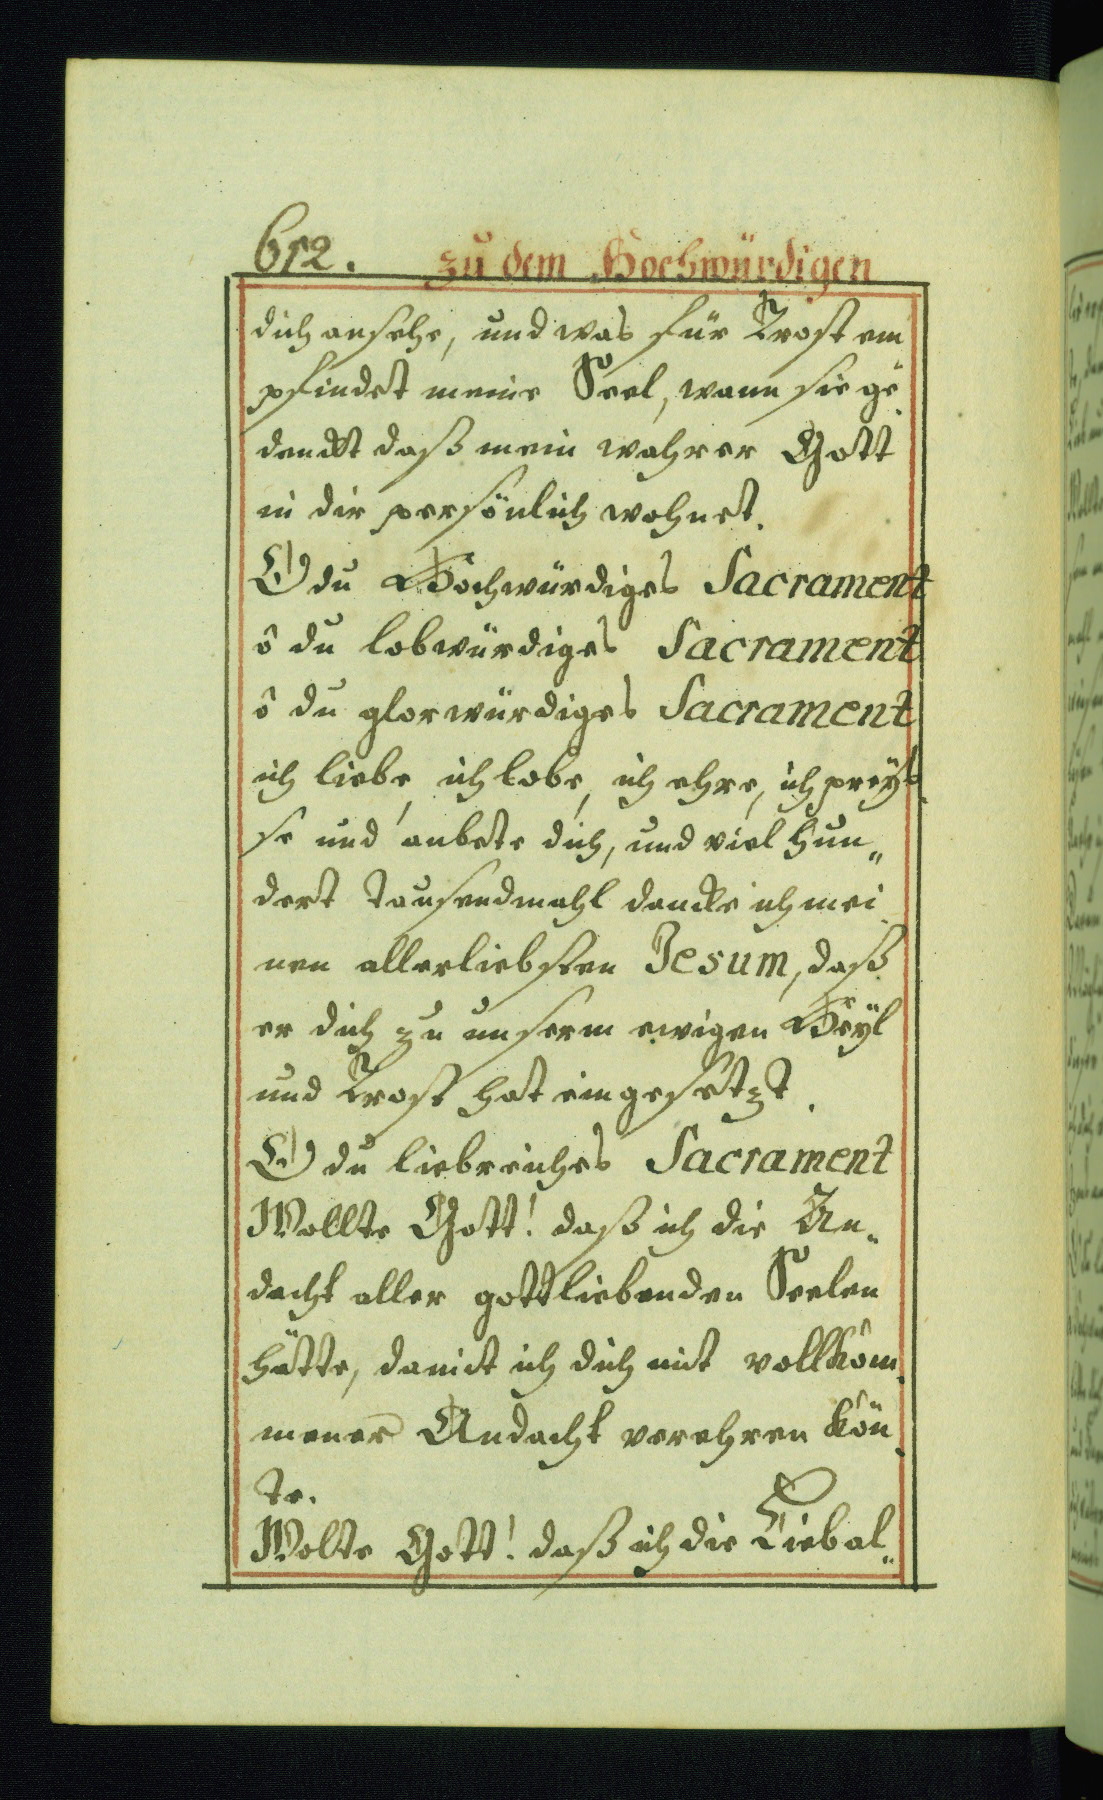 612. zu dem Hochwürdigen
dich ansehe, und was für Trost em
pfindet meine Seel, wann sie ge
denckt daß mein wahrer Gott
in dir persönlich wohnet.
O du Hochwürdiges Sacrament
ô du lobwürdiges Sacrament
ô du glorwürdiges Sacrament
ich liebe, ich lobe, ich ehre, ich preÿ
se und anbete dich, und viel hun„
dert tausendmahl dancke ich mei
nen allerliebsten Jesum, daß
er dich zu unserm ewigen Heÿl
und Trost hat eingesetzt.
O du liebreiches Sacrament
Wollte Gott! daß ich die An„
dacht aller gottliebenden Seelen
hätte, damit ich dich mit vollkom
mener Andacht verehren kön
te.
Wolte Gott! daß ich die Lieb al„